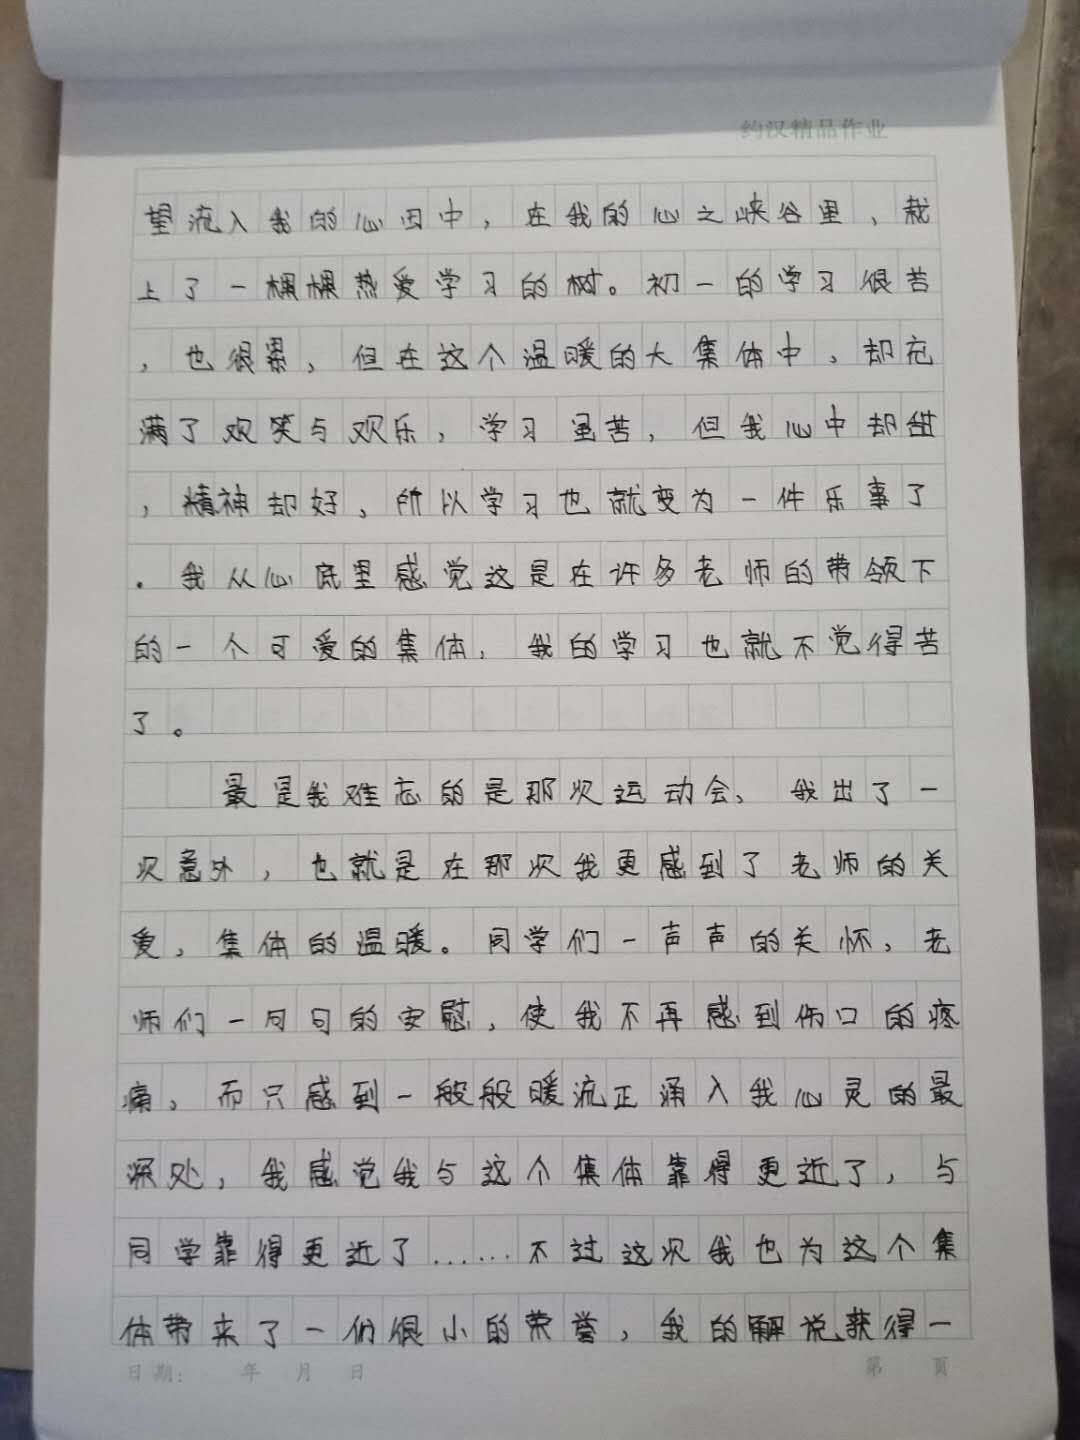 约汉精品作业
望流入我的心田中，在我的心之峡谷里，栽
上了一棵棵热爱学习的树。初一的学习很苦
，也很累，但在这个温暖的大集体中，却充
满了欢笑与欢乐，学习虽苦，但我心中却甜
，精神却好，所以学习也就变为一件乐事了
。我从心底里感觉这是在许多老师的带领下
的一个可爱的集体，我的学习也就不觉得苦
了。
最是我难忘的是那次运动会、我出了一
次意外，也就是在那次我更感到了老师的关
爱，集体的温暖。同学们一声声的关怀，老
师们一句句的安慰，使我不再感到伤口的疼
痛，而只感到一般般暖流正涌入我心灵的最
深处，我感觉我与这个集体靠得更近了，与
同学靠得更近了……不过这次我也为这个集
体带来了一份很小的荣誉，我的解说获得一
日期： 年 月 日 第 页